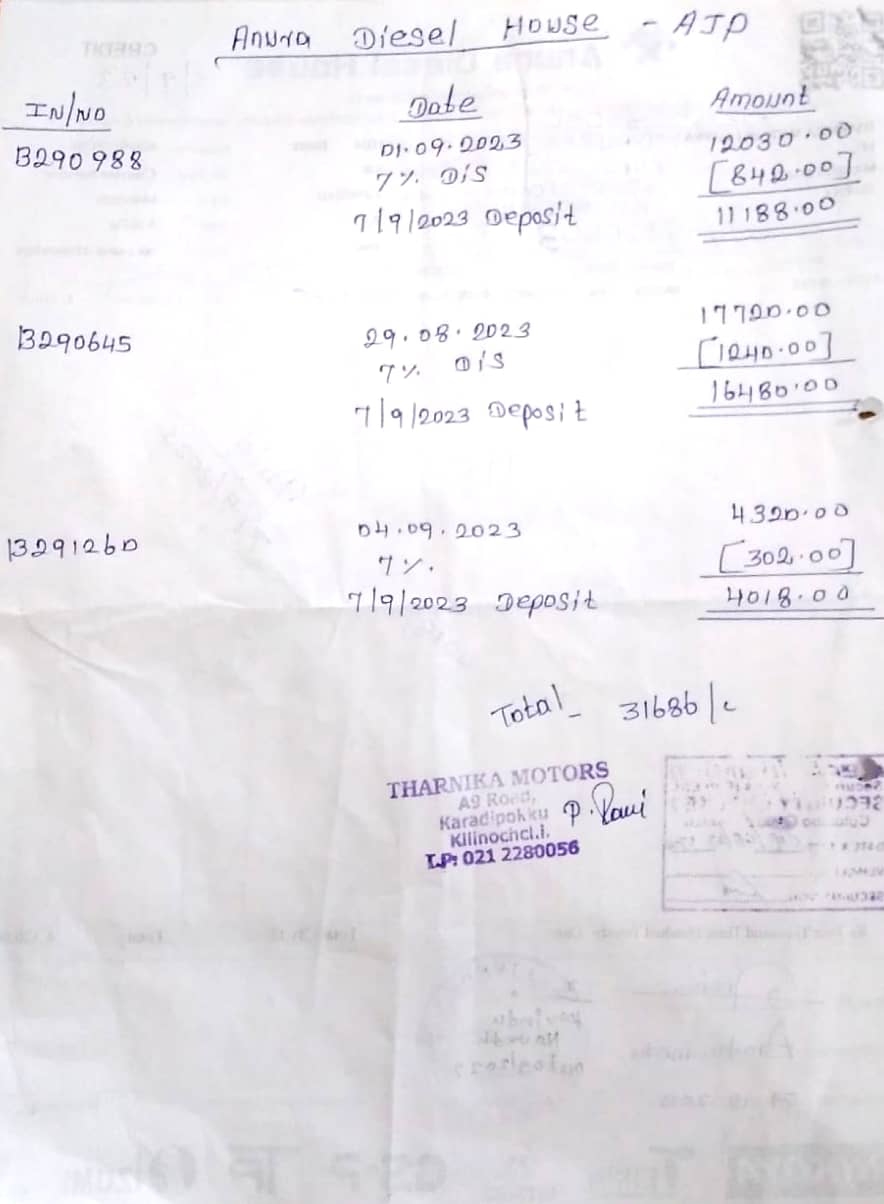 Anura Diesel House - AJP
IN/NO Date Amount
B290988 01.09.2023 12030.00
7% Dis [842.00]
7/9/2023 Deposit 11188.00
B290645 29.08.2023 17720.00
7% Dis [1240.00]
7/9/2023 Deposit 16480.00
B291260 04.09.2023 4320.00
7%. [302.00]
7/9/2023 Deposit 4018.00
Total - 31686/c
THARNIKA MOTORS
A9 Road,
Karadipokku P. Rani
Kilinochci.i.
T.P: 021 2280056